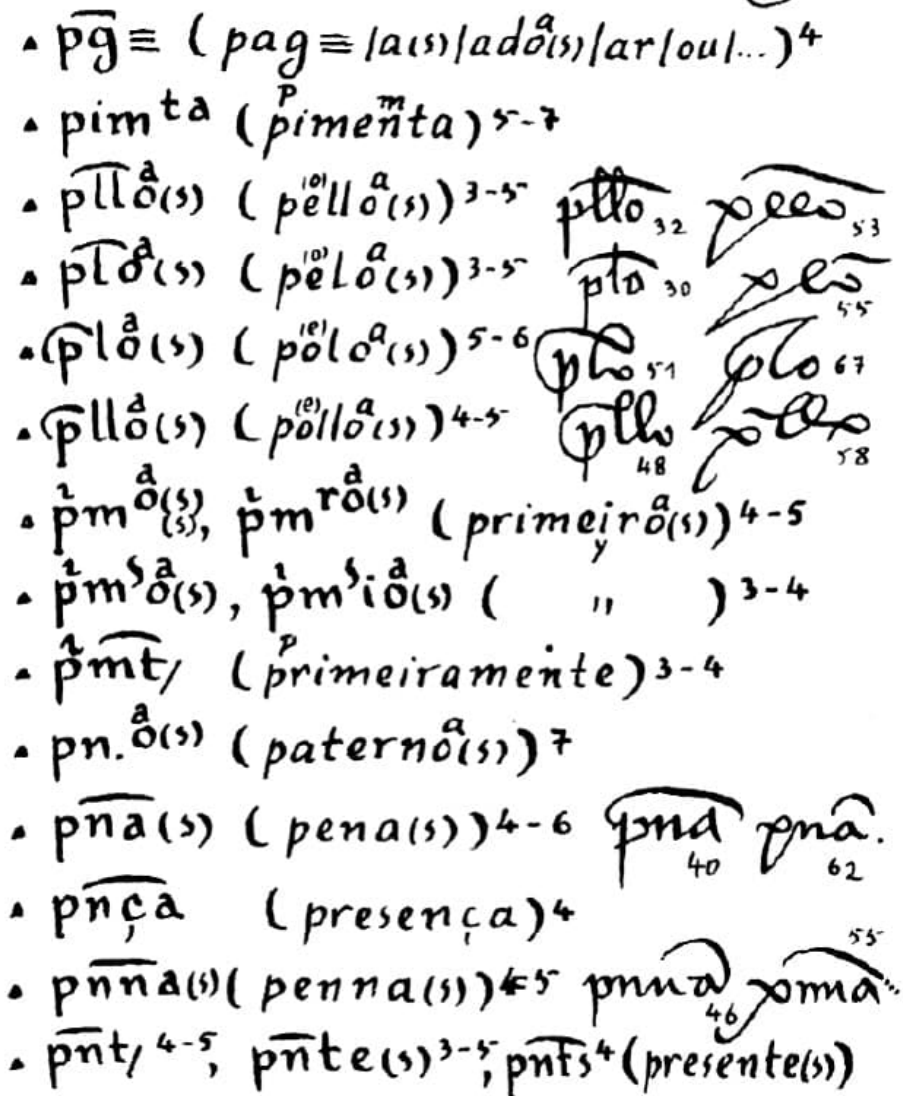 ▴ p͞g≡ (pag≡/a(s)/adoᵃ(s)/ar/ou/...)⁴
▴ pimᵗᵃ (pimenta)⁵⁻⁷
▴ p͞lloᵃ(s) (pe⁽ᵒ⁾lloᵃ(s))³⁻⁵ pllo 32 pllo 53
▴ p͞loᵃ(s) (pe⁽ᵒ⁾loᵃ(s))³⁻⁵ plo 30 plo 55
▴ ploᵃ(s) (po⁽ᵉ⁾loᵃ(s))⁵⁻⁶ plo 51 plo 67
▴ plloᵃ(s) (po⁽ᵉ⁾lloᵃ(s))⁴⁻⁵ pllo 48 pllo 58
▴ pⁱm oᵃ(s)(s), pⁱm roᵃ(s) (primeiyroᵃ(s))⁴⁻⁵
▴ pⁱmˢoᵃ(s), pⁱmˢioᵃ(s) ( " )³⁻⁴
▴ pⁱm͞t/ (primeiramente)³⁻⁴
▴ pn.oᵃ(s) (paternoᵃ(s))⁷
▴ p͞na(s) (pena(s))⁴⁻⁶ pna 40 pna. 62
▴ p͞nça (presença)⁴
▴ p͞nna(s) (penna(s))⁴⁻⁵ pnna 46 pnna 55
▴ p͞nt/ ⁴⁻⁵, p͞nte(s)³⁻⁵, p͞nts⁴ (presente(s))